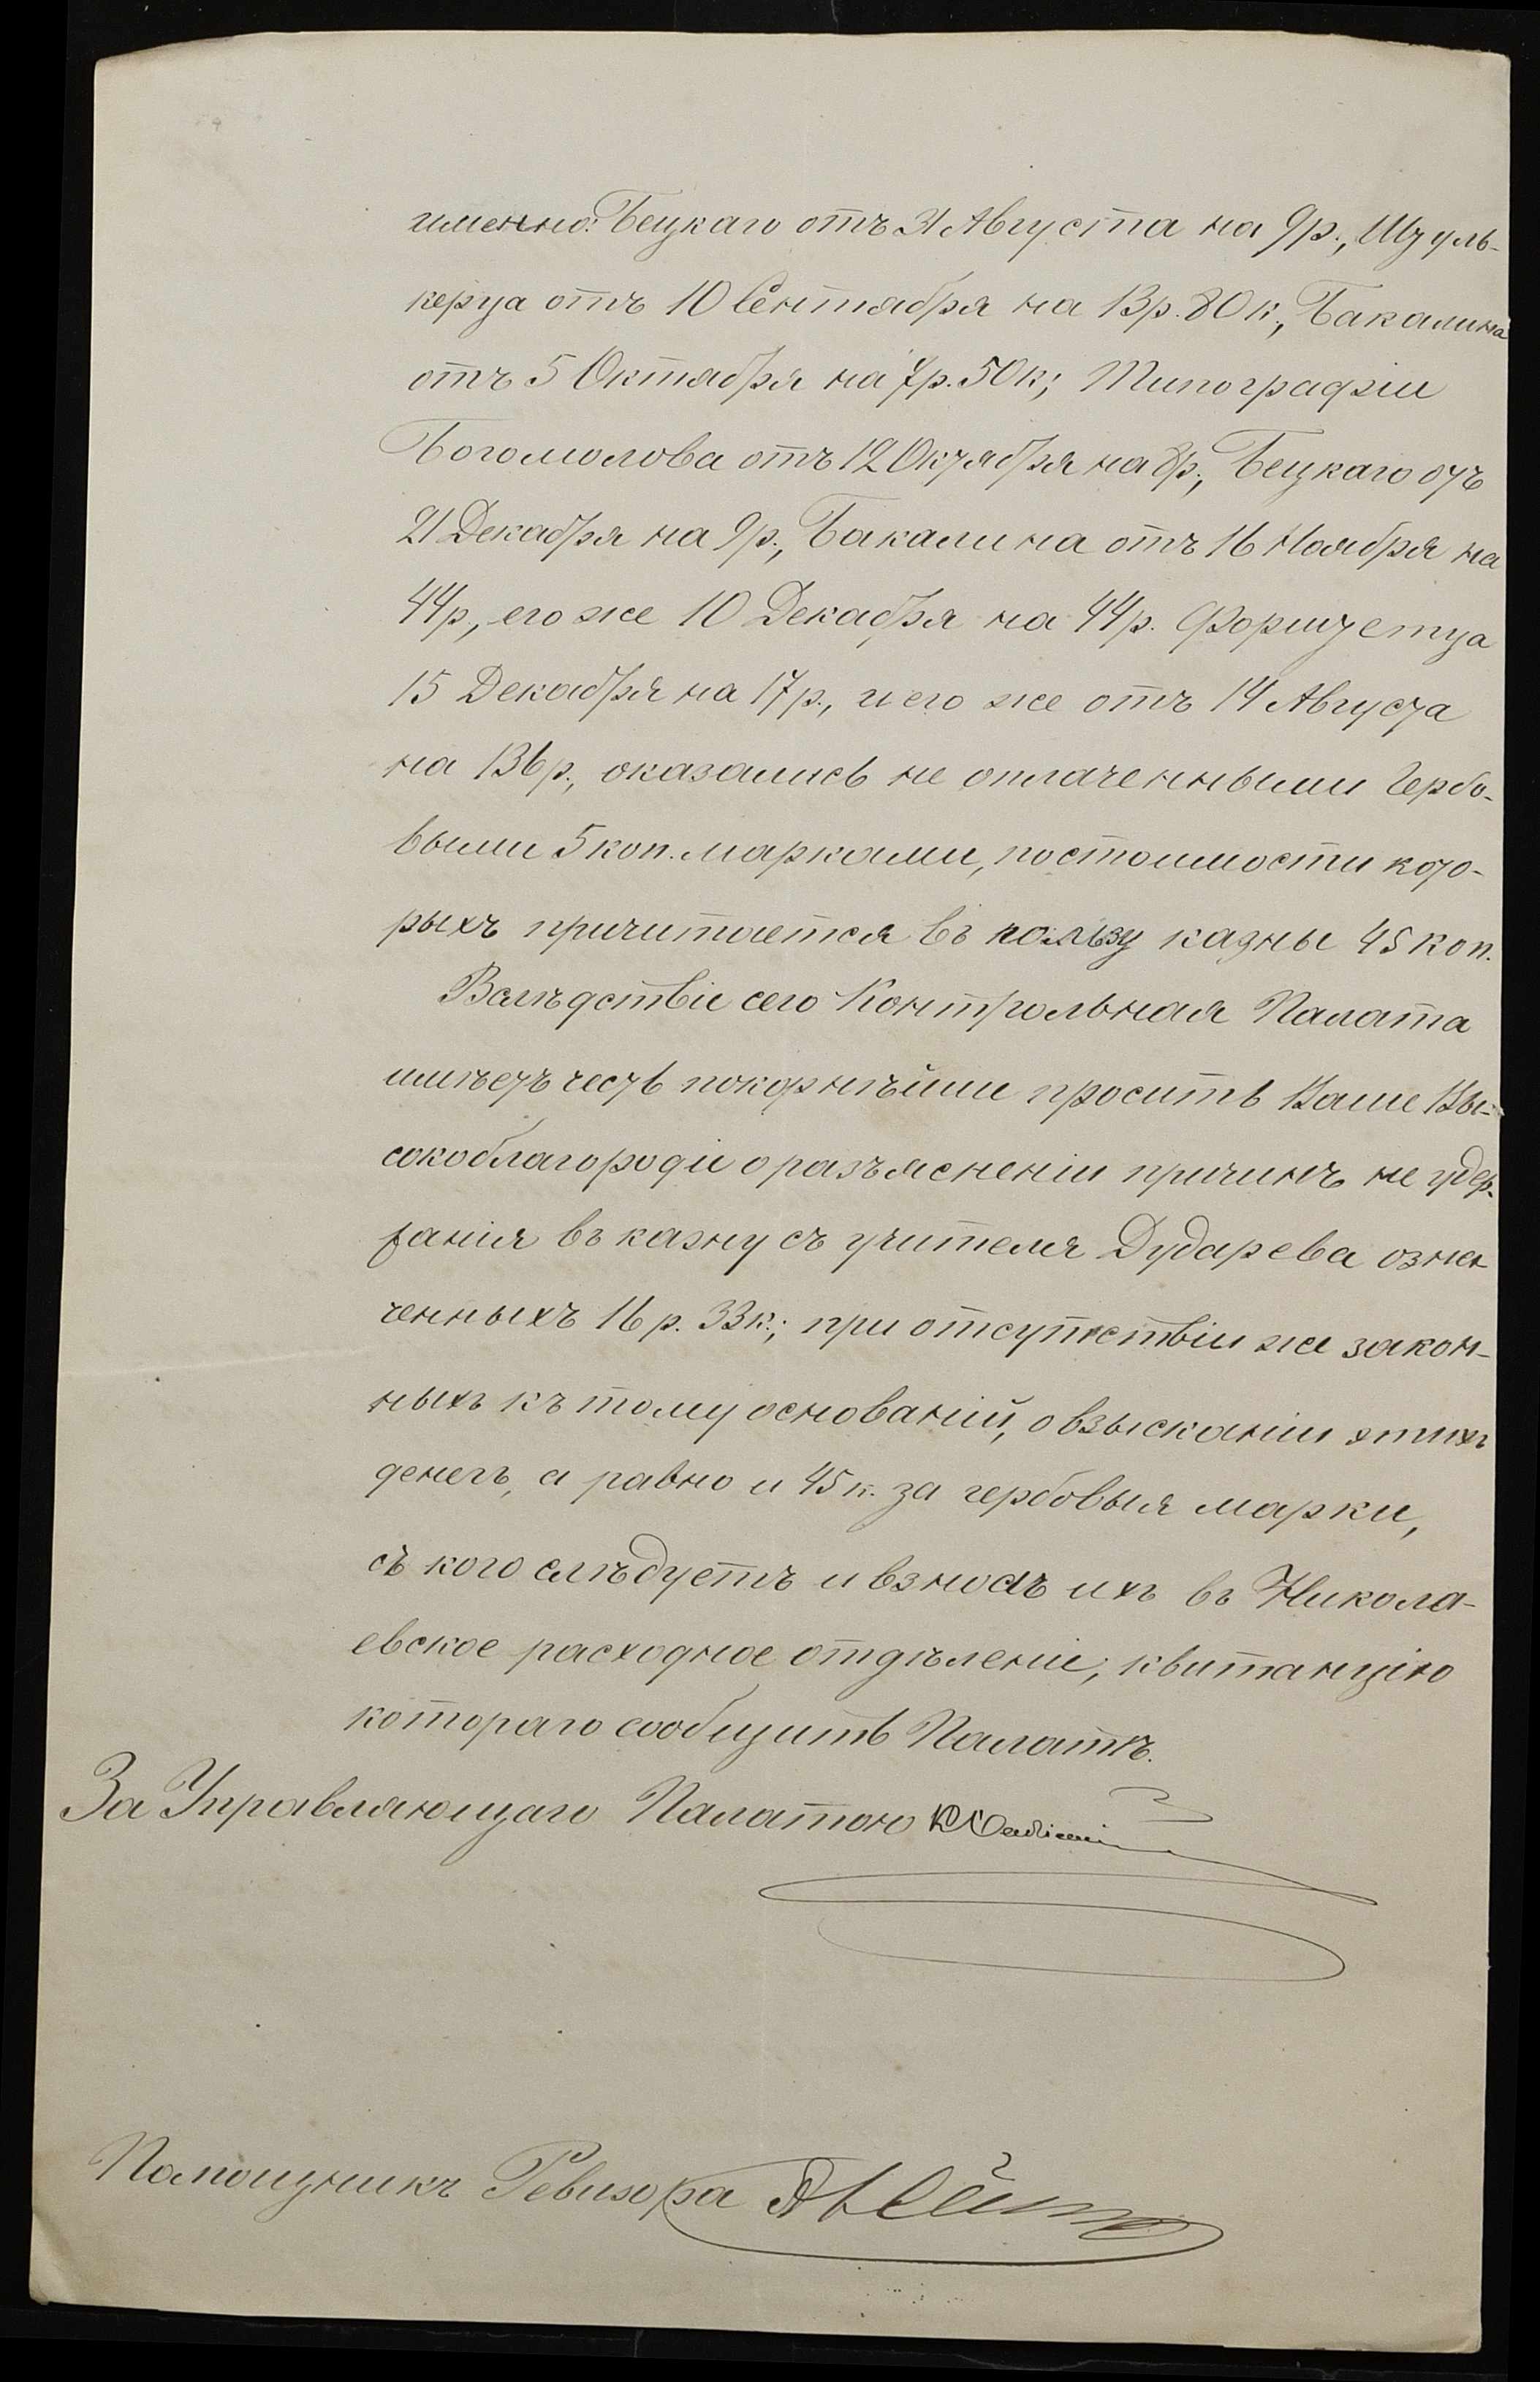 именно: Бецкаго отъ 31 Августа на 9р., Шуль-
керца отъ 10 Сентября на 13р. 80 к., Бакалина
отъ 5 Октября на 7р. 50к; Типографіи
Богомолова отъ 12 Октября на 8р., Бецкаго отъ
21 Декабря на 9р., Бакалина отъ 16 Ноября на
44р, его же 10 Декабря на 44р.
15 Декабря на 17р., и его же отъ 14 Августа
на 136р., оказались не оплаченными Гербо-
выми 5 коп. марками, по стоимости кото-
рыхъ причитается въ пользу казны 45 коп.
Вслѣдствіе сего Контрольная Палата
имѣетъ честь покорнѣйше просить Ваше Вы-
сокоблагородіе о разъясненіи причинъ не удер-
жанія въ казну съ учителя Дударева озна-
ченныхъ 16 р. 33 к.; при отсутствіи же закон-
ныхъ къ тому основаній, о взысканіи этихъ
денегъ, а равно и 45 к. за гербовыя марки,
съ кого слѣдуетъ и взносъ ихъ въ Никола-
евское расходное отдѣленіе; квитанцію
котораго сообщить Палатѣ.
За Управляющаго Палатою
Помощникъ Ревизора